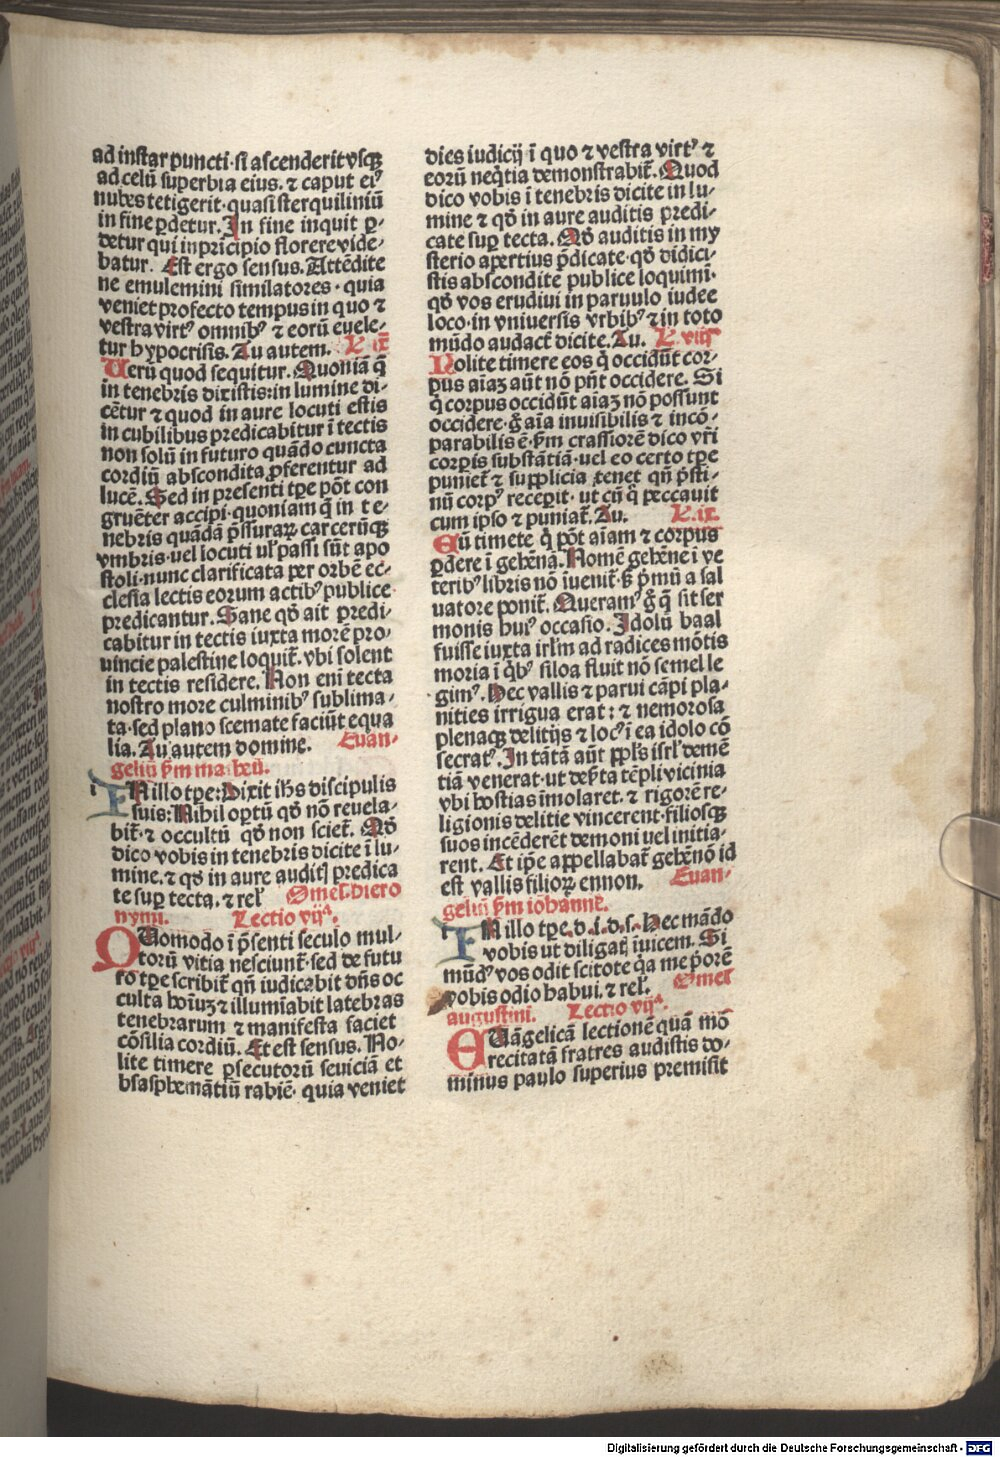 ad instar puncti· si ascenderit vsqꝫ
ad celū superbia eius. ⁊ caput eiꝰ
nubes tetigerit· quasi sterquiliniū
in fine ꝑdetur. In fine inquit ꝑ⸗
detur qui in principio florere vide⸗
batur. Est ergo sensus. Attēdite
ne emulemini similatores· quia
veniet profecto tempus in quo ⁊
vestra virtꝰ omnibꝰ ⁊ eorū euele⸗
tur hypocrisis. Tu autem. L ix
Uerū quod sequitur. Quoniā q̄
in tenebris dixistis: in lumine di⸗
cētur ⁊ quod in aure locuti estis
in cubilibus predicabitur ī tectis
non solū in futuro quādo cuncta
cordiū abscondita ꝓferentur ad
lucē. Sed in presenti tꝑe pōt con
gruēter accipi· quoniam q̄ in te⸗
nebris quādā p̄ssuraꝝ carcerūqꝫ
vmbris· uel locuti ul' passi sūt apo
stoli· nunc clarificata per orbē ec⸗
clesia lectis eorum actibꝰ publice
predicantur. Sane qḋ ait predi⸗
cabitur in tectis iuxta morē pro⸗
uincie palestine loquit̄. vbi solent
in tectis residere. Non eni tecta
nostro more culminibꝰ sublima⸗
ta· sed plano scemate faciūt equa
lia. Tu autem domine. Euan⸗
geliū ẜm matheū.
IN illo tꝑe: Dixit ihs discipulis
suis: Nihil oꝑtū qḋ nō reuela⸗
bit̄· ⁊ occultū qḋ non sciet̄. Qḋ
dico vobis in tenebris dicite ī lu⸗
mine. ⁊ qḋ in aure auditꝭ predica
te suꝑ tecta. ⁊ rel' Omel. Diero
nymi. Lectio vijᵃ.
QUomodo ī p̄senti seculo mul⸗
torū vitia nesciunt̄· sed de futu
ro tꝑe scribit̄ qn̄ iudicabit dn̄s oc
culta hoīuꝫ ⁊ illumīabit latebras
tenebrarum ⁊ manifesta faciet
cōsilia cordiū. Et est sensus. No⸗
lite timere ꝑsecutorū seuiciā et
blasphemātiū rabiē· quia veniet
dies iudicij ī quo ⁊ vestra virtꝰ ⁊
eorū neq̇tia demonstrabit̄. Quod
dico vobis ī tenebris dicite in lu⸗
mine ⁊ qḋ in aure auditis predi⸗
cate suꝑ tecta. Qḋ auditis in my
sterio apertius p̄dicate· qḋ didici⸗
stis abscondite publice loquimi·
qḋ vos erudiui in paruulo iudee
loco· in vniuersis vrbibꝰ ⁊ in toto
mūdo audact̄ dicite. Tu. L. viijᵃ
Nolite timere eos q̇ occidūt cor⸗
pus aīaꝫ aūt nō pn̄t occidere. Si
q̇ corpus occidūt aīaꝫ nō possunt
occidere· g̊ aīa inuisibilis ⁊ incō⸗
parabilis ē· ẜm crassiorē dico vr̄i
corꝑis substātiā· uel eo certo tꝑe
puniet̄ ⁊ supplicia tenet qn̄ p̄sti⸗
nū corpꝰ receꝑit· ut cū q̇ peccauit
cum ipso ⁊ puniat̄. Tu. L. ix.
Eū timete q̇ pōt aīam ⁊ corpus
ꝑdere ī gehēnā. Nomē gehēne ī ve
teribꝰ libris nō īuenit̄· ẜ p̄mū a sal
uatore ponit̄. Queramꝰ g̊ q̄ sit ser
monis huiꝰ occasio. Idolū baal
fuisse iuxta irl'm ad radices mōtis
moria ī q̇bꝰ siloa fluit nō semel le
gimꝰ. Hec vallis ⁊ parui cāpi pla⸗
nities irrigua erat: ⁊ nemorosa
plenaqꝫ delitijs ⁊ locꝰ ī ea idolo cō
secratꝰ. In tātā aūt ppl's isrl' demē
tiā venerat· ut deꝑta tēpli vicinia
vbi hostias īmolaret. ⁊ rigorē re⸗
ligionis delitie vincerent· filiosqꝫ
suos incēderēt demoni uel initia⸗
rent. Et ip̄e appellabat̄ gehēnō id
est vallis filioꝝ ennon. Euan⸗
geliū ẜm iohannē.
IN illo tꝑe. d. i. d. s. Hec mādo
vobis ut diligatꝭ īuicem. Si
mūdꝰ vos odit scitote q̇a me p̄orē
vobis odio habui. ⁊ rel'. Omel
augustini. Lectio vijᵃ.
EUāgelicā lectionē quā mō
recitatā fratres audistis do⸗
minus paulo superius premisit
Digitalisierung gefördert durch die Deutsche Forschungsgemeinschaft - DFG